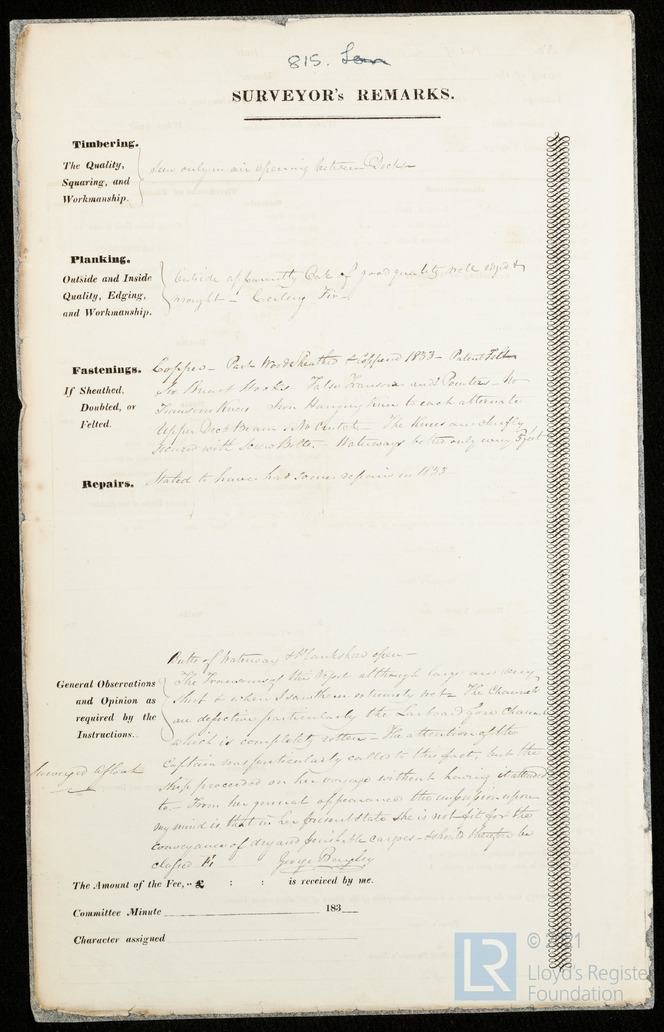 815. Lon
SURVEYOR's REMARKS.
Timbering.
The Quality,
Squaring, and
Workmanship.
Seen only in air opening between Decks
Planking.
Outside and Inside
Quality, Edging,
and Workmanship.
Outside apparently Oak of good quality well edged &
wrought – Ceiling Fir –
Fastenings.
If Sheathed,
Doubled, or
Felted.
Copper – Part Wood Sheathed & Coppered 1833 – Patent Felt
Six Breast Hooks False Transom and Pointers – No
Transom Knees Iron Hanging Knee to each alternate
Upper Deck Beam. No – The Knees are chiefly
secured with Bolts. – Waterways bolted only every
Repairs.
Stated to have had some repairs in 1833
Butts of Waterway & Plankshear open –
General Observations
and Opinion as
required by the
Instructions.
The Transoms of this Vessel although large are very
short & when I saw them extremely wet – The Channels
are defective particularly the Larboard fore Channel
which is completely rotten – The attention of the
Captain was particularly called to this fact, but the
Ship proceeded on her voyage without having it attended
to. – From her general appearance the impression upon
my mind is, that in her present state she is not fit for the
conveyance of dry and perishable cargoes – & should therefore be
classed
George Bayley
Surveyed afloat
The Amount of the Fee, .. £ : : is received by me.
Committee Minute 183
Character assigned
LR
© 2021
Lloyd's Register
Foundation